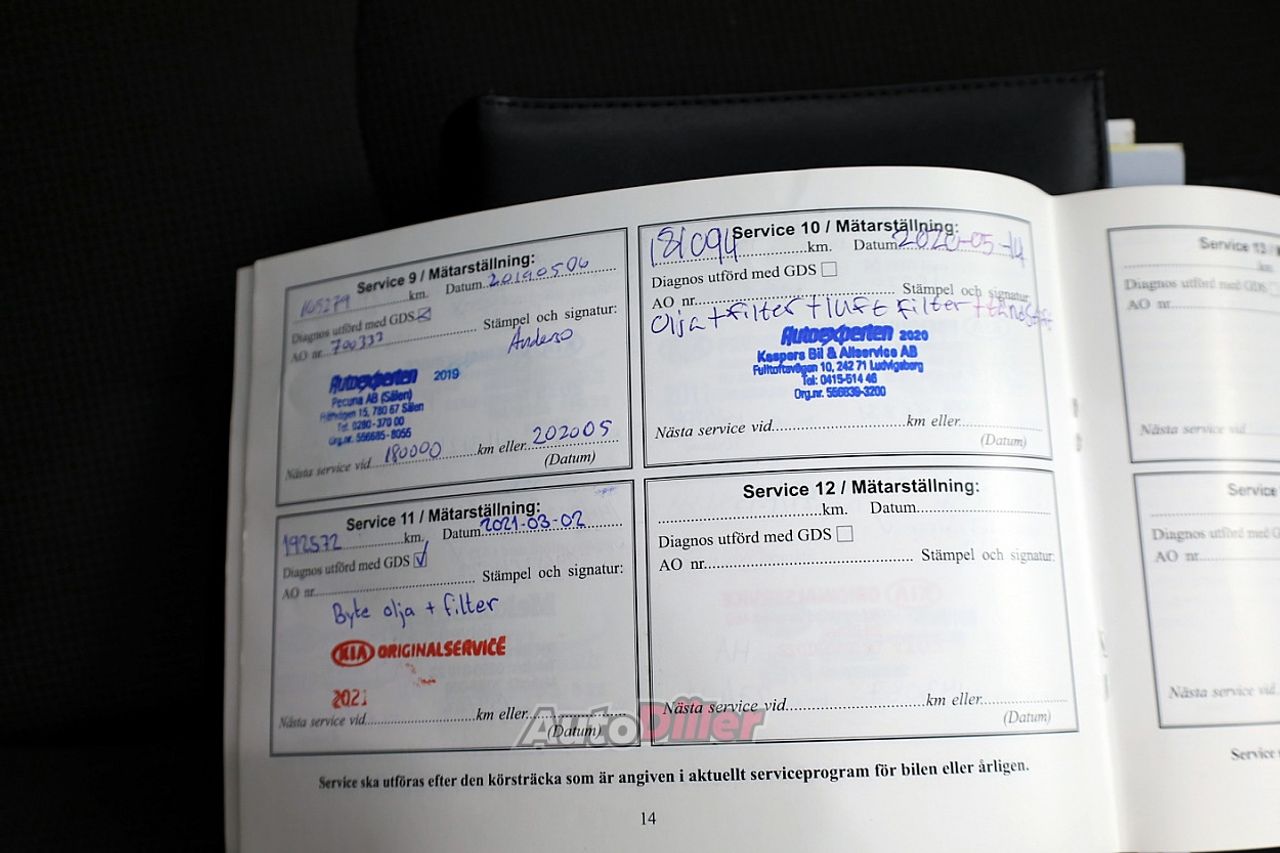 Service 9 / Mätarställning:
165279 km. Datum 20190506
Diagnos utförd med GDS
AO nr. 700333 Stämpel och signatur:
Anders
Autoexperten 2019
Pecuna AB (Sälen)
780 67 Sälen
Tel: 0280-370 00
Org.nr. 556685-8055
Nästa service vid 180000 km eller 202005
(Datum)
Service 10 / Mätarställning:
181094 km. Datum 2020-05-14
Diagnos utförd med GDS
AO nr. Stämpel och signatur:
Olja + filter + luft filter + tändstift
Autoexperten 2020
Kaspers Bil & Allservice AB
Fulltoftavägen 10, 242 71 Ludvigsborg
Tel: 0415-514 46
Org.nr. 556839-3200
Nästa service vid km eller
(Datum)
Service 11 / Mätarställning:
192572 km. Datum 2021-03-02
Diagnos utförd med GDS
AO nr. Stämpel och signatur:
Byte olja + filter
KIA ORIGINALSERVICE
2021
Nästa service vid km eller
(Datum)
Service 12 / Mätarställning:
km. Datum
Diagnos utförd med GDS
AO nr. Stämpel och signatur:
Nästa service vid km eller
(Datum)
AutoDiller
Service ska utföras efter den körsträcka som är angiven i aktuellt serviceprogram för bilen eller årligen.
14
Service 13
km.
Diagnos utförd med GDS
AO nr.
Nästa service vid
Service
Diagnos utförd med
AO nr.
Nästa service vid
Service